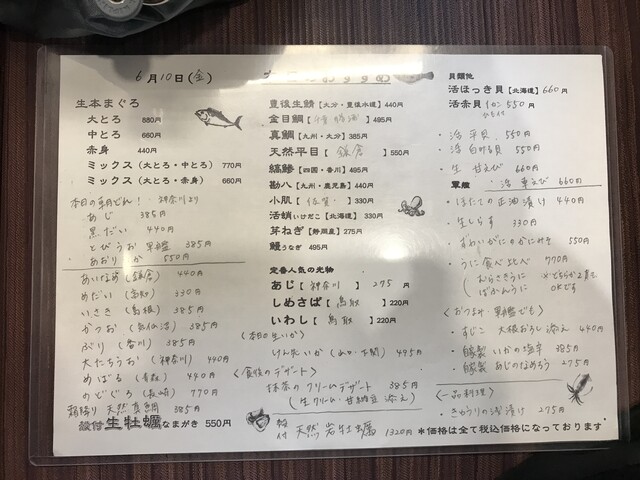 6月10日(金)
生本まぐろ
大とろ 880円
中とろ 660円
赤身 440円
ミックス(大とろ・中とろ) 770円
ミックス(大とろ・赤身) 660円
あじ 385円
黒だい 440円
とびうお 軍艦 385円
あおりいか 550円
あいなめ(鎌倉) 440円
めだい(高知) 330円
いさき(島根) 385円
かつお(気仙沼) 385円
ぶり(香川) 385円
太たちうお(神奈川) 440円
めばる(青森) 440円
のどぐろ(長崎) 770円
箱盛り 天然真鯛 385円
殻付生牡蠣なまがき 550円
おすすめ
豊後生鯖【大分・豊後水道】440円
金目鯛【 】495円
真鯛【九州・大分】385円
天然平目【 鎌倉 】550円
縞鯵【四国・香川】495円
勘八【九州・鹿児島】440円
小肌【 佐賀 】330円
活蛸いけだこ【北海道】330円
芽ねぎ【静岡産】275円
鰻うなぎ 495円
定番人気の光物
あじ【 神奈川 】275円
しめさば【 鳥取 】220円
いわし【 鳥取 】220円
〈本日の生いか〉
けんさいか(山口・下関) 495円
〈食後のデザート〉
抹茶のクリームデザート 385円
(生クリーム・甘納豆 添え)
殻付 天然岩牡蠣 1320円
貝類他
活ほっき貝【北海道】660円
活赤貝 1コ 550円
・活 平貝 550円
・活 白ミル貝 550円
・生 甘えび 660円
・活 車えび 660円
軍艦
・ほたての正油漬け 440円
・生しらす 330円
・ずわいがにのかにみそ 550円
・うに食べ比べ 770円
(むらさきうに
ばふんうに
※どちらか2貫でもOKです
〈おつまみ・軍艦でも〉
・すじこ 大根おろし添え 440円
・自家製 いかの塩辛 385円
・自家製 あじのなめろう 275円
〈一品料理〉
・きゅうりの浅漬け 275円
*価格は全て税込価格になっております